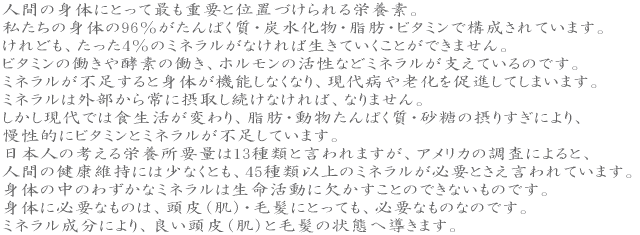 人間の身体にとって最も重要と位置づけられる栄養素。
私たちの身体の96％がたんぱく質・炭水化物・脂肪・ビタミンで構成されています。
けれども、たった4％のミネラルがなければ生きていくことができません。
ビタミンの働きや酵素の働き、ホルモンの活性などミネラルが支えているのです。
ミネラルが不足すると身体が機能しなくなり、現代病や老化を促進してしまいます。
ミネラルは外部から常に摂取し続けなければ、なりません。
しかし現代では食生活が変わり、脂肪・動物たんぱく質・砂糖の摂りすぎにより、
慢性的にビタミンとミネラルが不足しています。
日本人の考える栄養所要量は13種類と言われますが、アメリカの調査によると、
人間の健康維持には少なくとも、45種類以上のミネラルが必要とさえ言われています。
身体の中のわずかなミネラルは生命活動に欠かすことのできないものです。
身体に必要なものは、頭皮（肌）・毛髪にとっても、必要なものなのです。
ミネラル成分により、良い頭皮（肌）と毛髪の状態へ導きます。